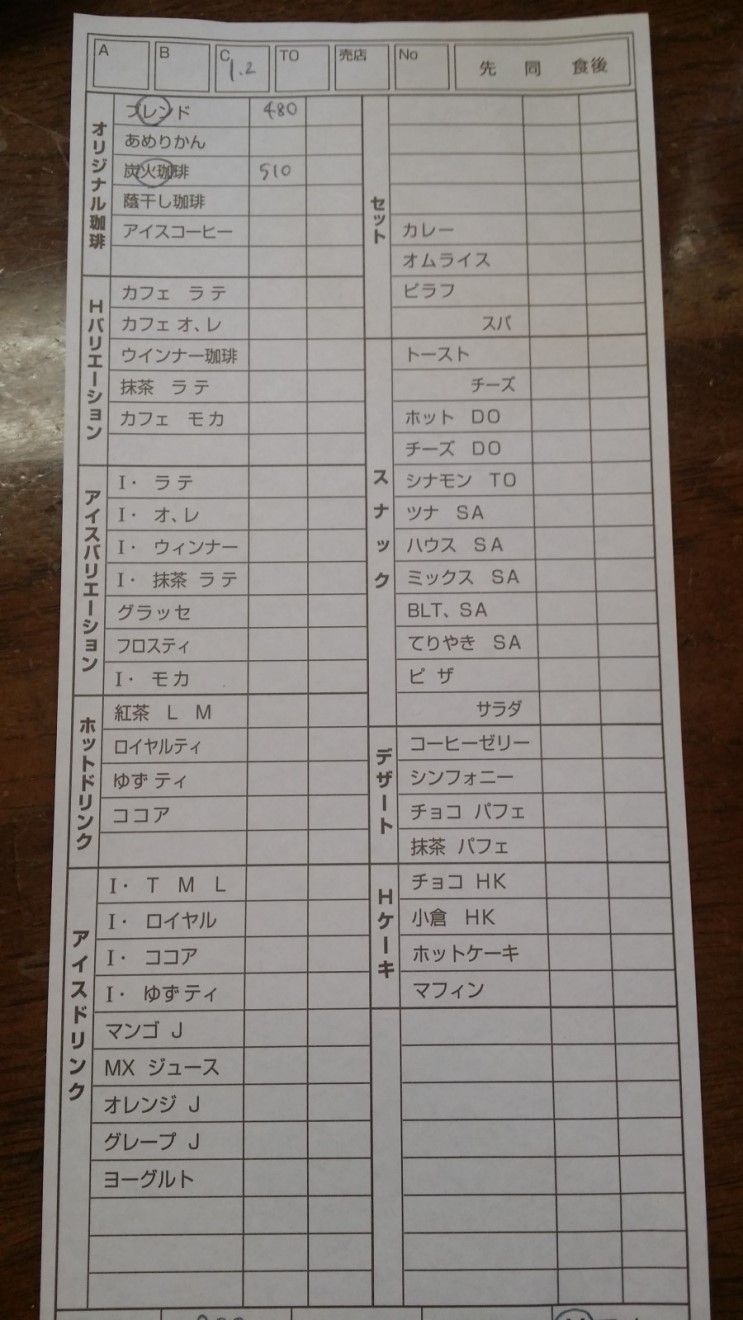 A B C 1.2 TO 売店 No 先 同 食後
オリジナル珈琲
ブレンド 480
あめりかん
炭火珈琲 510
蔭干し珈琲
アイスコーヒー
Hバリエーション
カフェ ラテ
カフェ オ、レ
ウインナー珈琲
抹茶 ラテ
カフェ モカ
アイスバリエーション
I・ ラテ
I・ オ、レ
I・ ウィンナー
I・ 抹茶 ラテ
グラッセ
フロスティ
I・ モカ
ホットドリンク
紅茶 L M
ロイヤルティ
ゆず ティ
ココア
アイスドリンク
I・ T M L
I・ ロイヤル
I・ ココア
I・ ゆずティ
マンゴ J
MX ジュース
オレンジ J
グレープ J
ヨーグルト
セット
カレー
オムライス
ピラフ
スパ
スナック
トースト
チーズ
ホット DO
チーズ DO
シナモン TO
ツナ SA
ハウス SA
ミックス SA
BLT、SA
てりやき SA
ピザ
サラダ
デザート
コーヒーゼリー
シンフォニー
チョコ パフェ
抹茶 パフェ
Hケーキ
チョコ HK
小倉 HK
ホットケーキ
マフィン